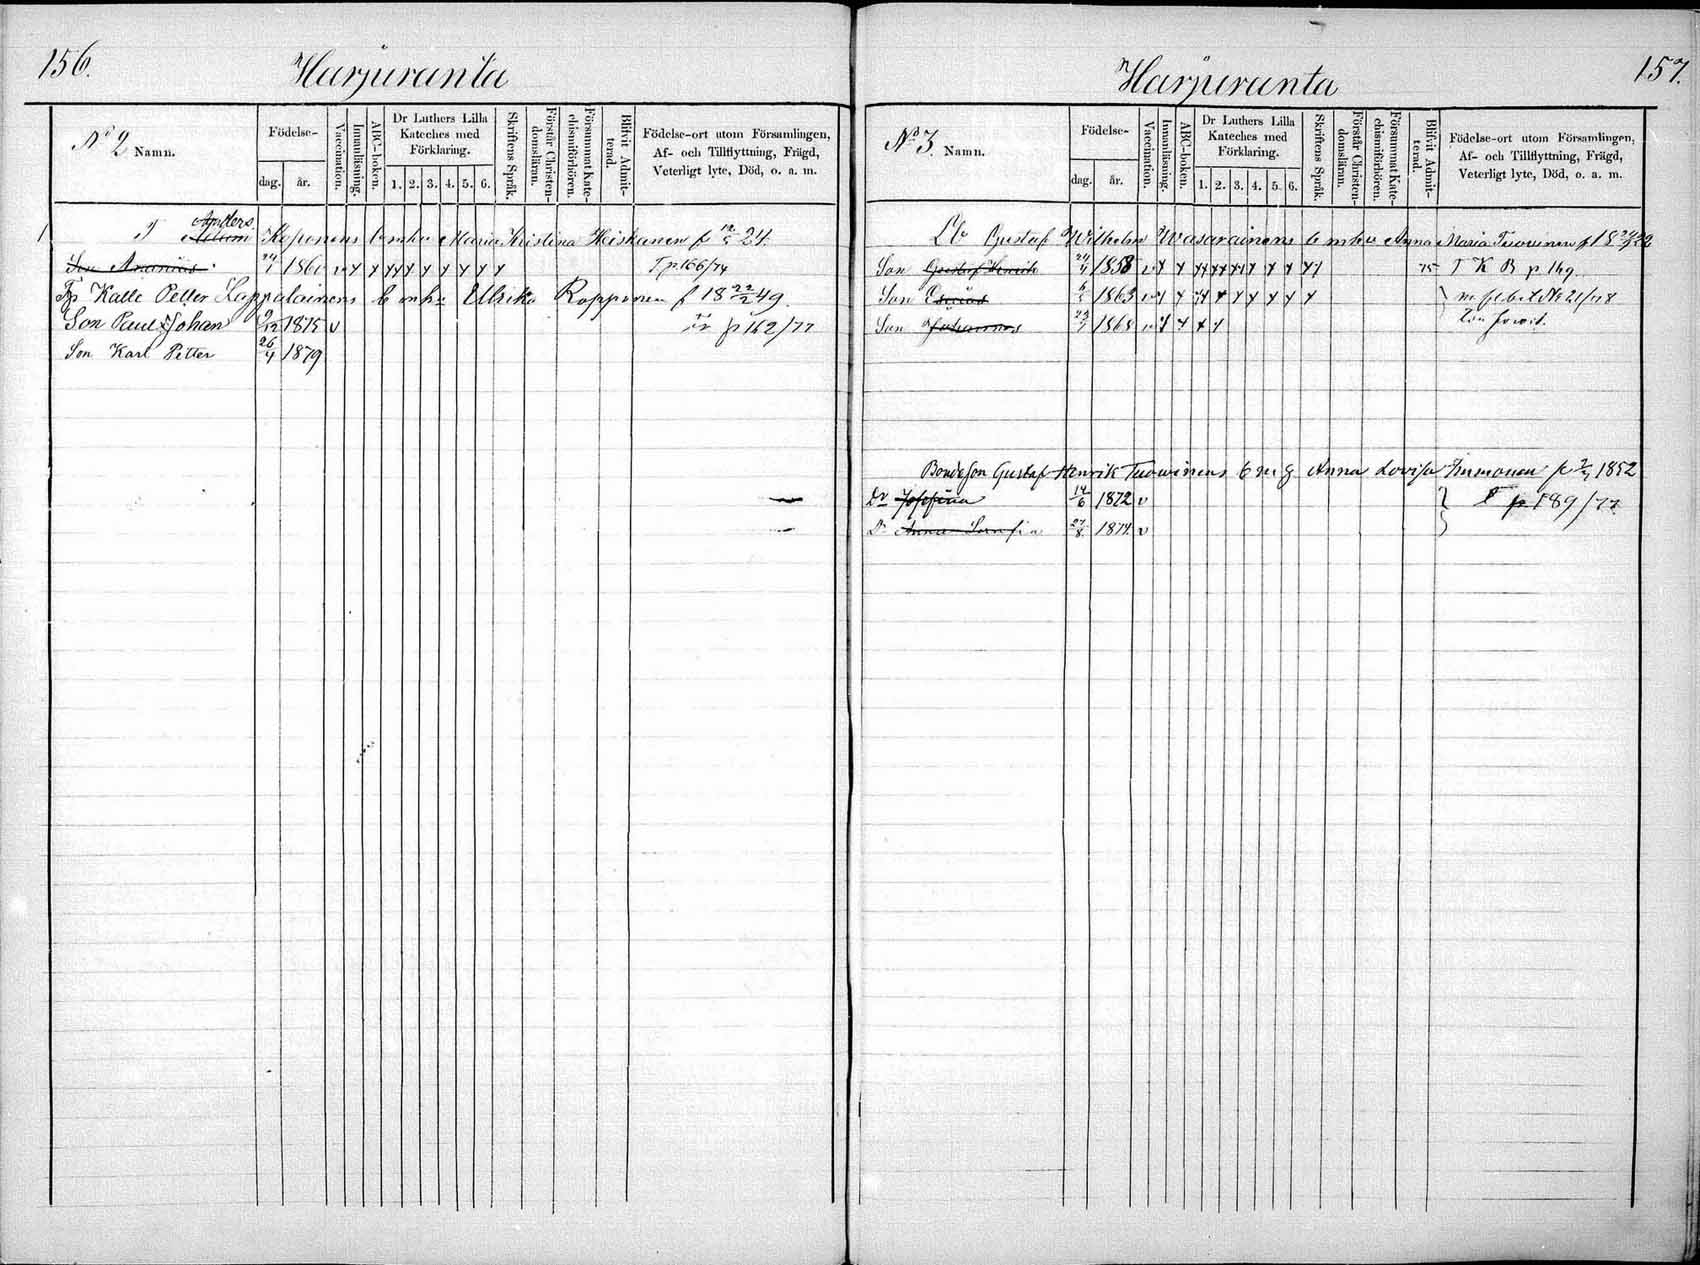 156.
Harjuranta
No 2 Namn.
Födelse-
dag.
år.
Vaccination.
Innanläsning.
ABC-boken.
Dr Luthers Lilla
Kateches med
Förklaring.
1. 2. 3. 4. 5. 6.
Skriftens Språk.
Förstår Christen-
domsläran.
Försummat Kate-
chismiförhören.
Blifvit Admit-
terad.
Födelse-ort utom Församlingen,
Af- och Tillflyttning, Frägd,
Veterligt lyte, Död, o. a. m.
Anders
1 T Adam Koponens E m hu Maria Kristina Heiskanen f 24.
Son Ananias 1860 v x x x x x x x x x T p 166/74
Kalle Petter Lappalainens E m hu Ulrika Ropponen f 18 22/2 49.
Son Paul Johan 9/12 1875 v p 162/77
Son Karl Petter 26/4 1879
157.
Harjuranta
No 3. Namn.
Födelse-
dag.
år.
Vaccination.
Innanläsning.
ABC-boken.
Dr Luthers Lilla
Kateches med
Förklaring.
1. 2. 3. 4. 5. 6.
Skriftens Språk.
Förstår Christen-
domsläran.
Försummat Kate-
chismiförhören.
Blifvit Admit-
terad.
Födelse-ort utom Församlingen,
Af- och Tillflyttning, Frägd,
Veterligt lyte, Död, o. a. m.
Gustaf Wilhelm Wasarainens E m hu Anna Maria Tuovinen f 18 22
Son Gustaf Henrik 1858 v x x x x x x x x x x 75 T K B p 169
Son Esaias 1863 v x x x x x x x x x
Son Johannes 1868 v x x x x x
Bondeson Gustaf Henrik Tuovinens E m g Anna Lovisa Immonen f 1852
Dr Josefina 14/6 1872 v p 189/77
Dr Anna Serafia 27/8 1874 v